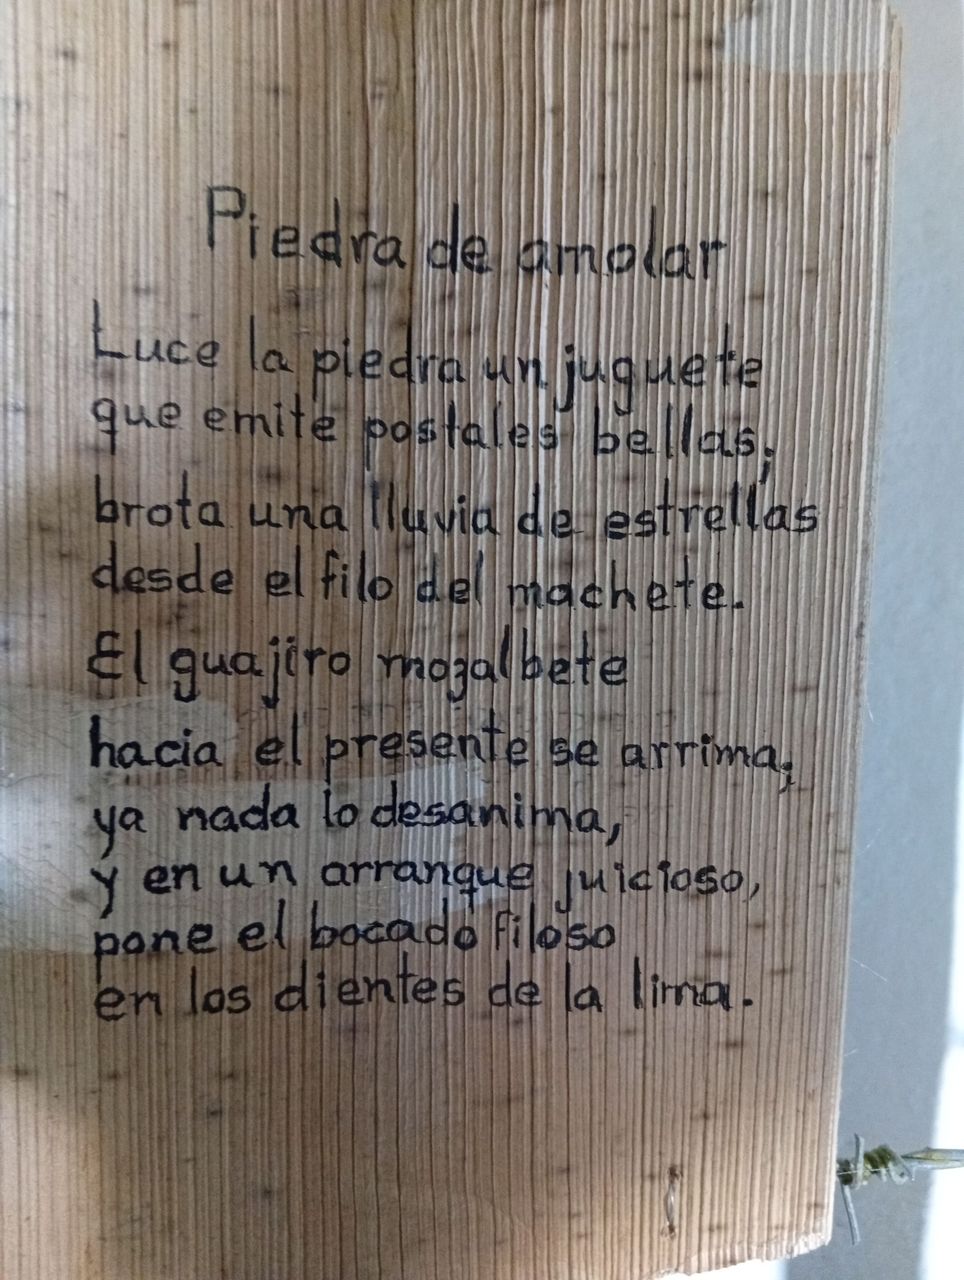 Piedra de amolar
Luce la piedra un juguete
que emite postales bellas;
brota una lluvia de estrellas
desde el filo del machete.
El guajiro mozalbete
hacia el presente se arrima;
ya nada lo desanima,
y en un arranque juicioso,
pone el bocado filoso
en los dientes de la lima.